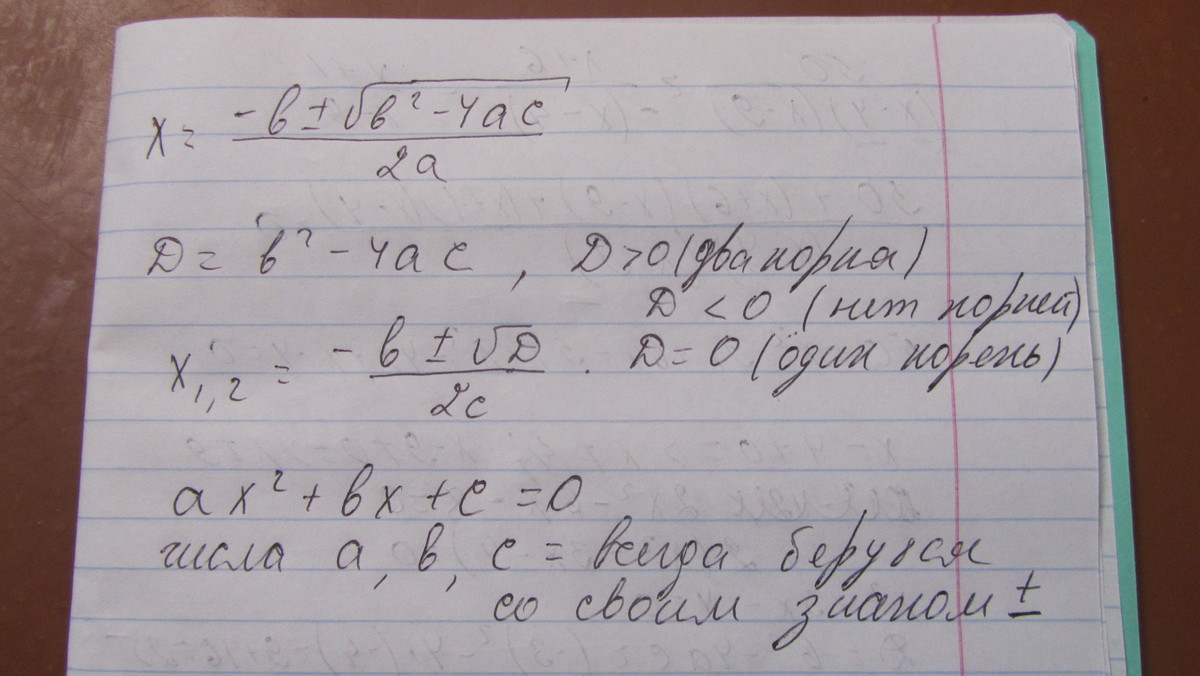 x = (-в ± √(в² - 4ac)) / 2a
D = в² - 4ac , D > 0 (два корня)
D < 0 (нет корней)
x₁,₂ = (-в ± √D) / 2c . D = 0 (один корень)
ax² + вx + c = 0
числа a, в, c = всегда берутся
со своим знаком ±